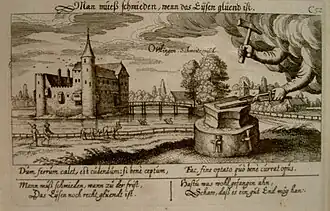 Man mueß schmieden, wenn das Eÿsen glüend ist.
C52
Dum ferrum calet, est cudendum: si bene cæptum,
Fac, fine optato quo bene currat opus.
Mann muß schmieden, wann zu der frist
Das Eÿsen noch recht glüend ist.
Hastu was wohl gefangen ahn,
Schaw, daß es ein gut End mög han.